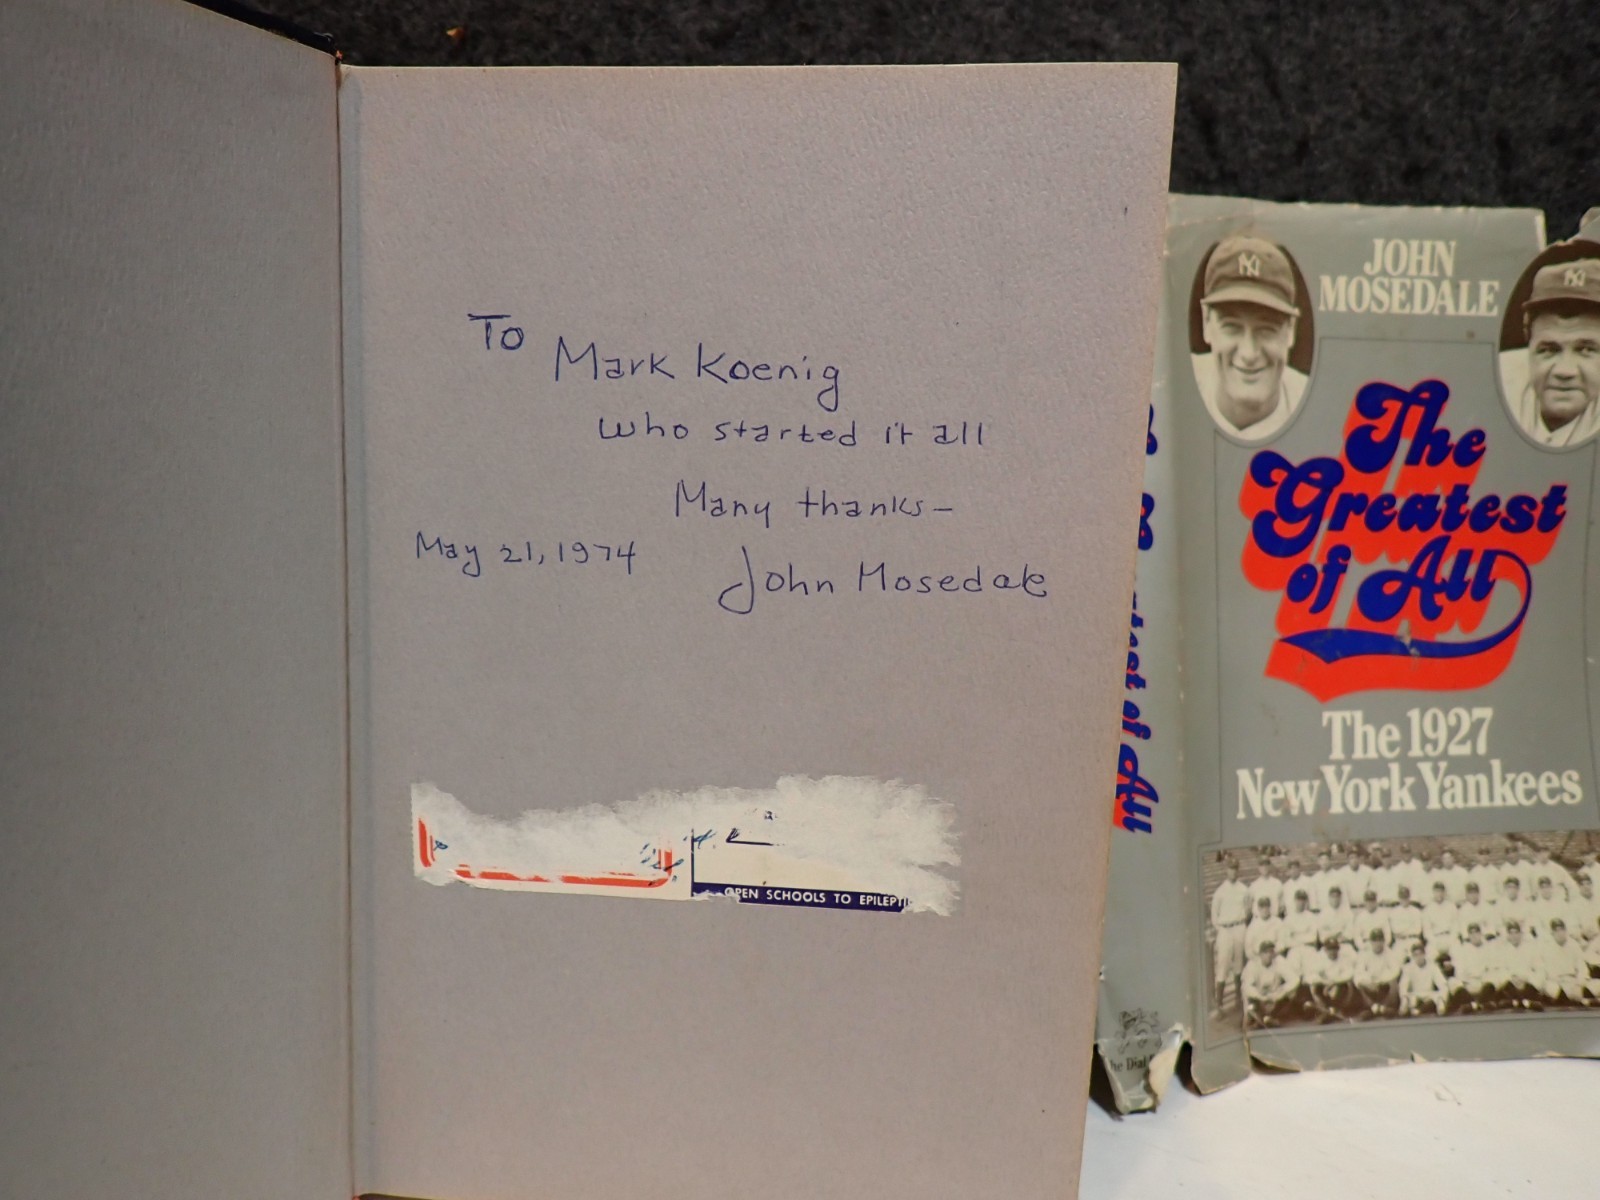 To Mark Koenig
who started it all
Many thanks—
May 21, 1974
John Mosedale
OPEN SCHOOLS TO
JOHN
MOSEDALE
The
Greatest
of All
The 1927
New York Yankees
of All
Dial